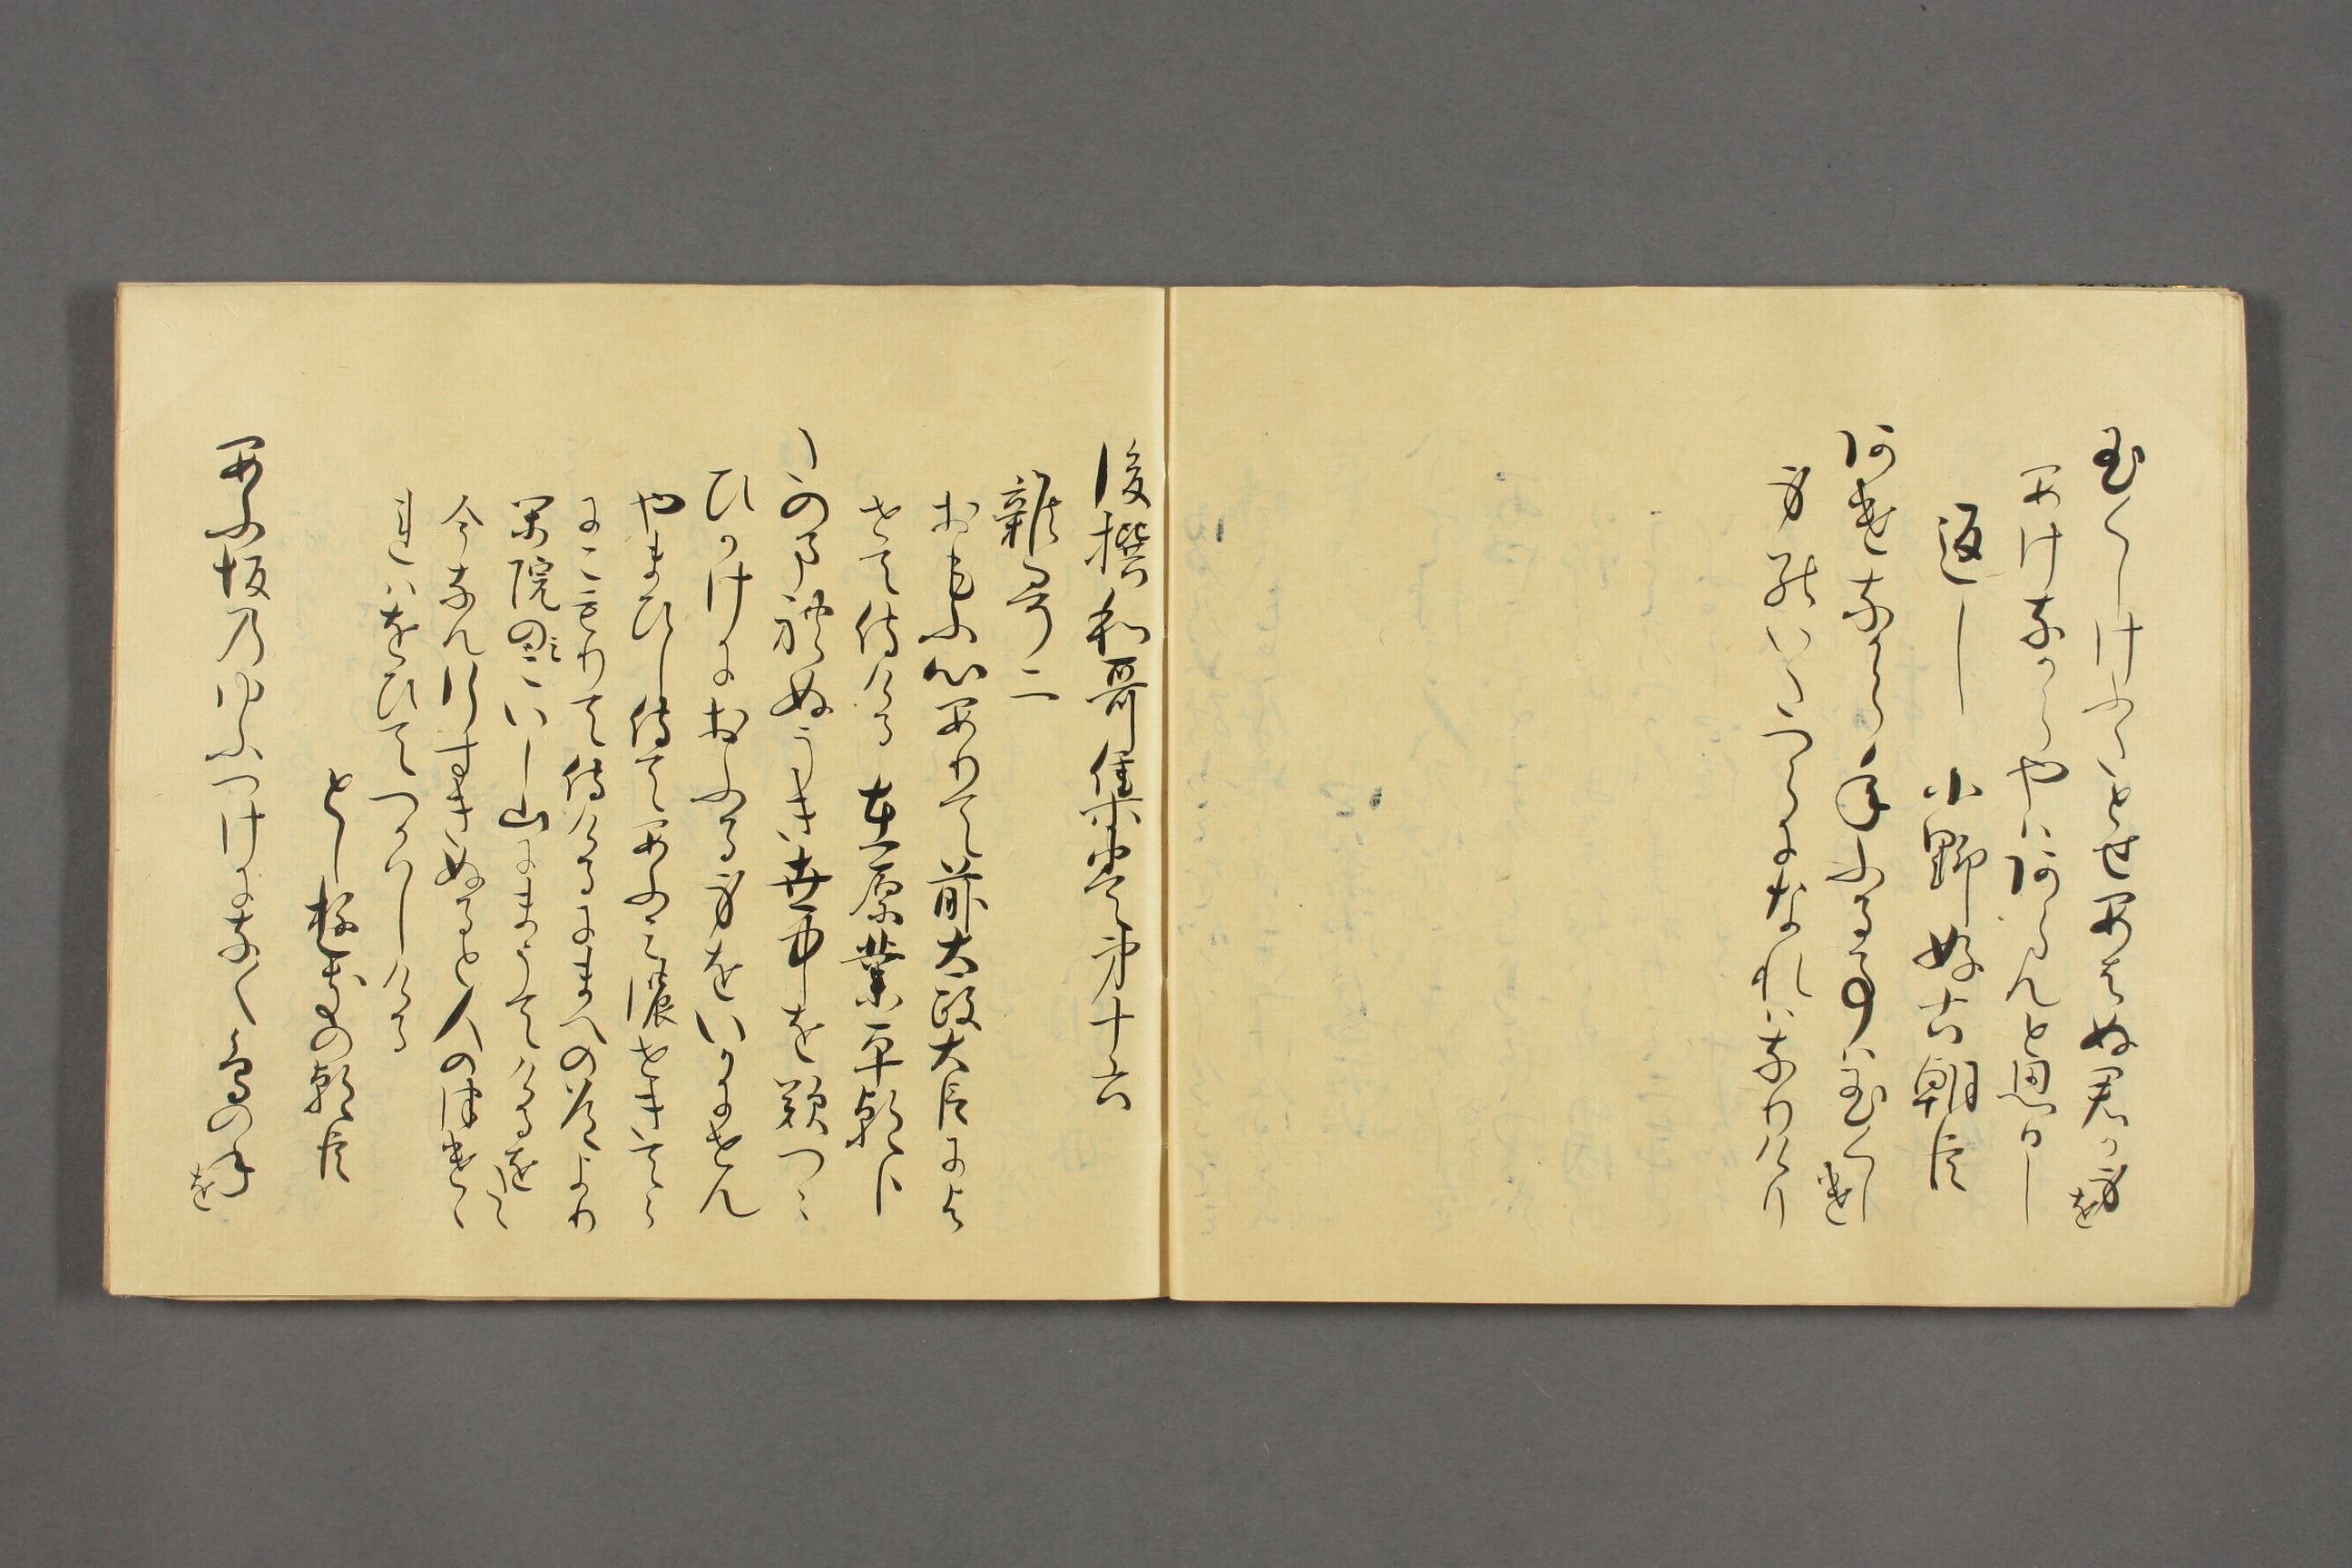 玉くしけふたとせあはぬ君か身を
あけなからやはあらんと思ひし
返し　小野好古朝臣
あけなから年ふることは玉くしけ
身のいたつらになれはなりけり
後撰和哥集巻第十六
雑哥二
おもふ心ありて前太政大臣によ
せて侍ける　在原業平朝臣
たのまれぬうき世中を歎つゝ
ひかけにおふる身をいかにせん
やまひし侍てあふみのせきてら
にこもりて侍けるにまへの道より
閑院のこいし山にまうてけるをたゝ
今なん行すきぬると人のつけ侍け
れはをひてつかはしける
としゆきの朝臣
あふ坂のゆふつけになく鳥のねを